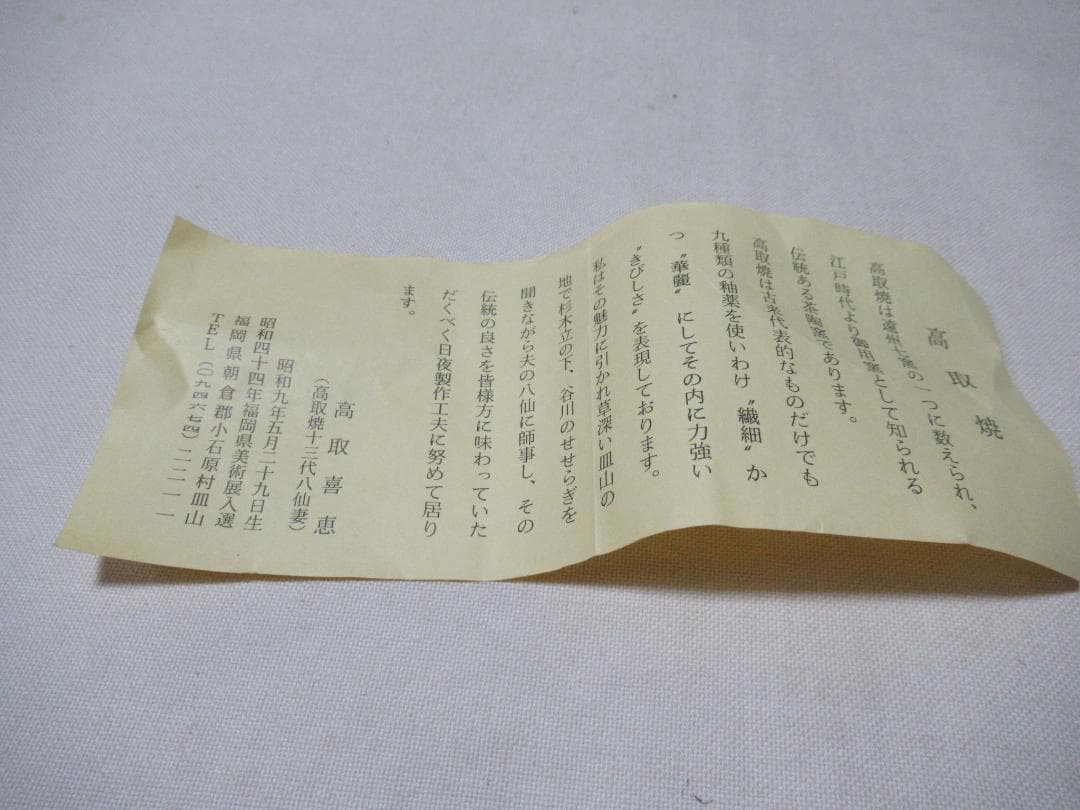 高取焼
高取焼は遠州七窯の一つに数えられ、
江戸時代より御用窯として知られる
伝統ある茶陶窯であります。
高取焼は古来代表的なものだけでも
九種類の釉薬を使いわけ〝繊細〟か
つ〝華麗〟にしてその内に力強い
〝きびしさ〟を表現しております。
私はその魅力に引かれ草深い皿山の
地で杉木立の下、谷川のせせらぎを
聞きながら夫の八仙に師事し、その
伝統の良さを皆様方に味わっていた
だくべく日夜製作工夫に努めて居り
ます。
高取喜恵
(高取焼十三代八仙妻)
昭和九年五月二十九日生
昭和四十四年福岡県美術展入選
福岡県朝倉郡小石原村皿山
TEL(〇九四六七四)二二一一